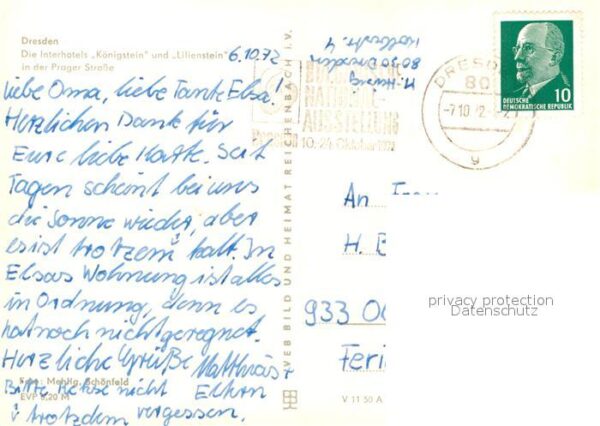 Dresden
Die Interhotels „Königstein" und „Lilienstein"
in der Prager Straße
6.10.72
Liebe Oma, liebe Tante Elsa!
Herzlichen Dank für
Eure liebe Karte. Seit
Tagen scheint bei uns
die Sonne wieder, aber
es ist trotzem kalt. In
Elsas Wohnung ist alles
in Ordnung, denn es
hat noch nicht geregnet.
Herzliche Grüße Matthias +
Eltern
Bitte Kekse nicht
trotzdem vergessen.
Foto: Mehlig, Schönfeld
EVP 0,20 M
VEB BILD UND HEIMAT REICHENBACH I. V.
V 11 50 A
8030 Dresden
NATIONALE
AUSSTELLUNG
10.-24. Oktober 1972
DRESDEN
80
-7.10.72
g
10
DEUTSCHE
DEMOKRATISCHE REPUBLIK
An Frau
H. E
933
Feri
privacy protection
Datenschutz